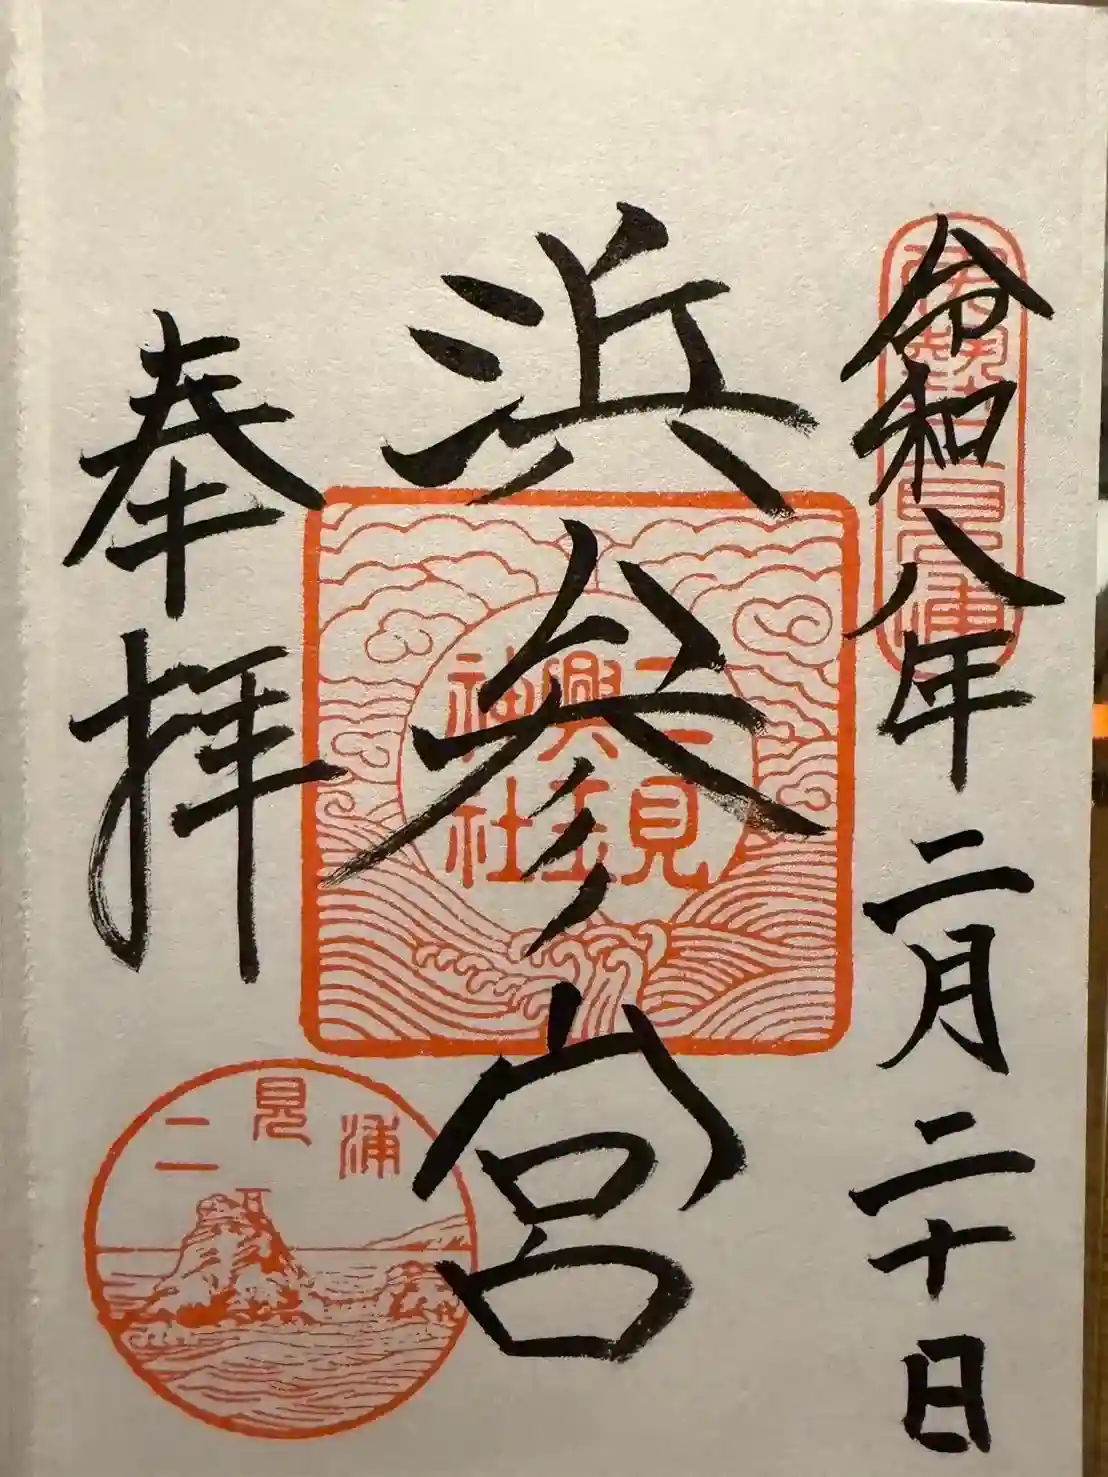 令和八年二月二十日
伊勢二見浦
浜参宮
二見
興玉
神社
奉拝
二見浦